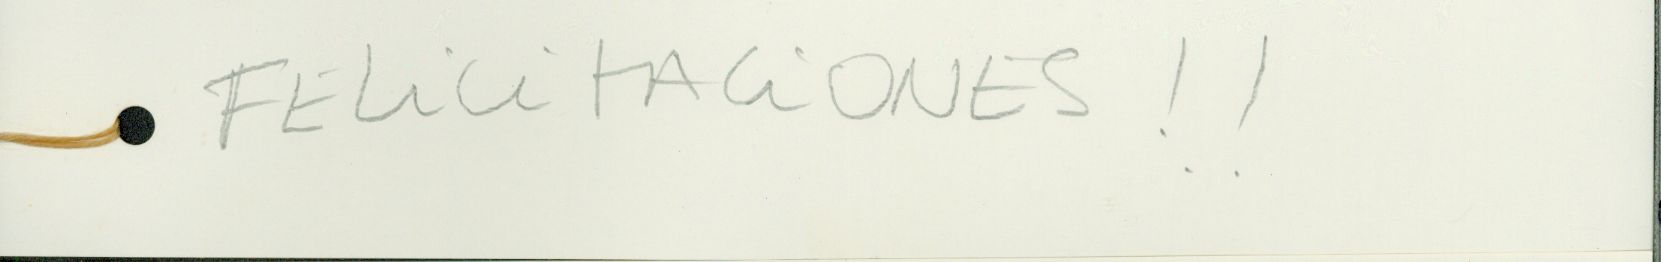 FELiCiTACiONES !!